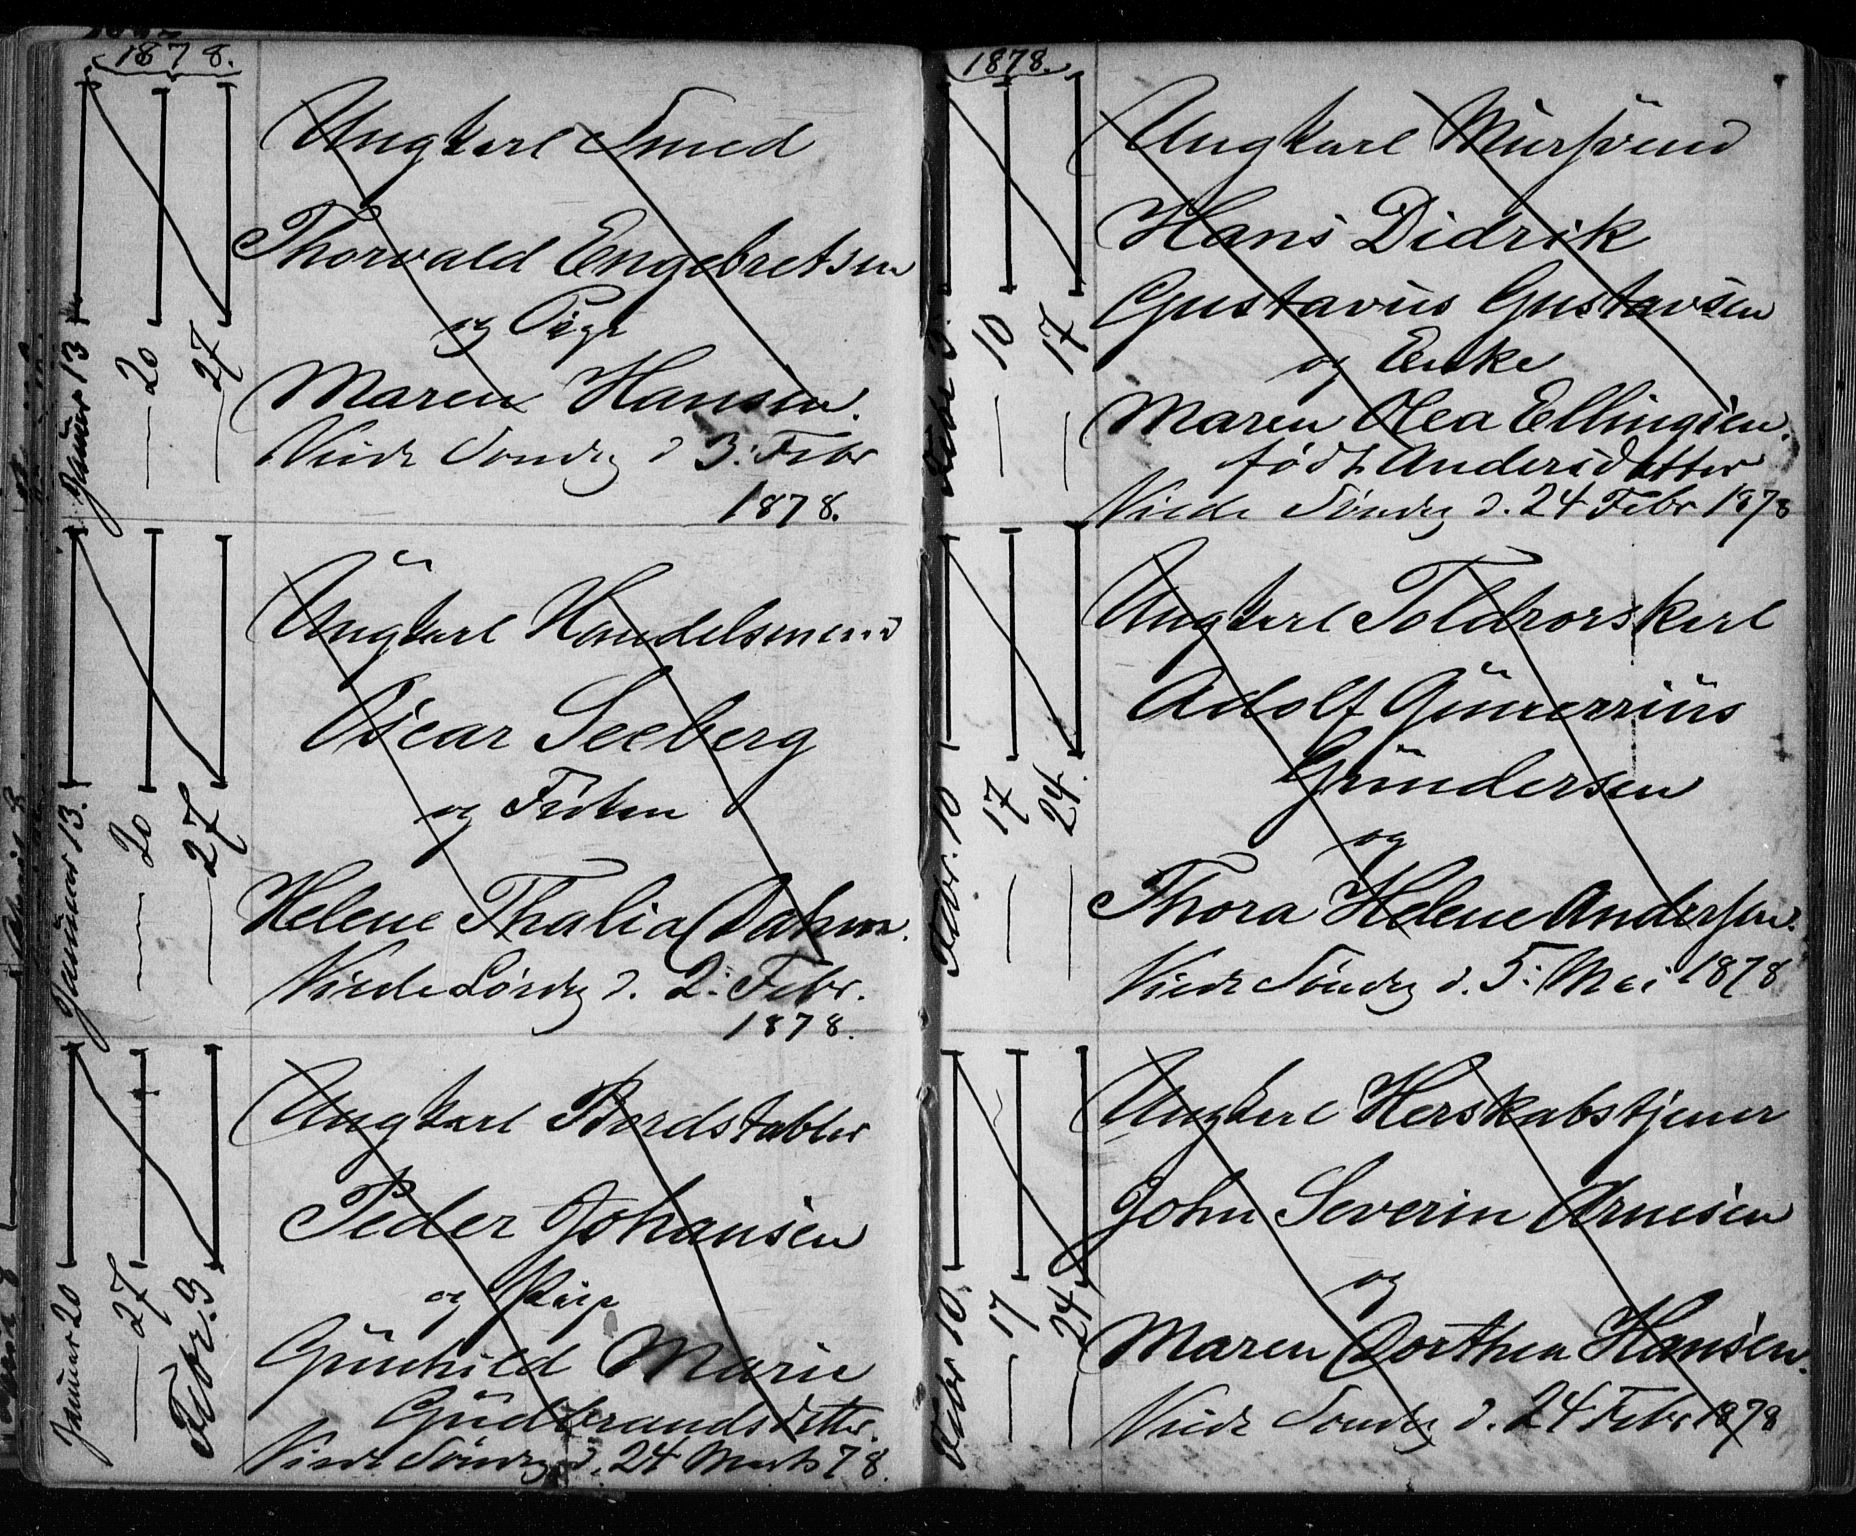 1878.
Januar 13
— 20
— 27
Ungkarl Smed
Thorvald Engebretsen
og Pige
Maren Hansen.
Viede Søndag d 3. Febr
1878.
Januar 13.
— 20
— 27
Ungkarl Handelsmand
Oscar Seeberg
og Frøken
Helene Thalia Dahm.
Viede Lørdag d. 2. Febr.
1878.
Januar 20
— 27
Febr. 3
Ungkarl Bordstabler
Peder Johansen
og Pige
Gunhild Marie
Gudbrandsdatter.
Viede Søndag d. 24 Marts 78.
1878.
Febr 3.
— 10
— 17
Ungkarl Mursvend
Hans Didrik
Gustavus Gustavsen
og Enke
Maren Olea Ellingsen.
født Andersdatter
Viede Søndag d. 24 Febr 1878
Febr. 10
— 17
— 24.
Ungkarl Toldrorskarl
Adolf Gunerrius
Gundersen
og
Thora Helene Andersen.
Viede Søndag d. 5. Mai 1878
Febr 10.
— 17
— 24
Ungkarl Herskabstjener
John Severin Arnesen
og
Maren Dorthea Hansen.
Viede Søndag d. 24 Febr 1878